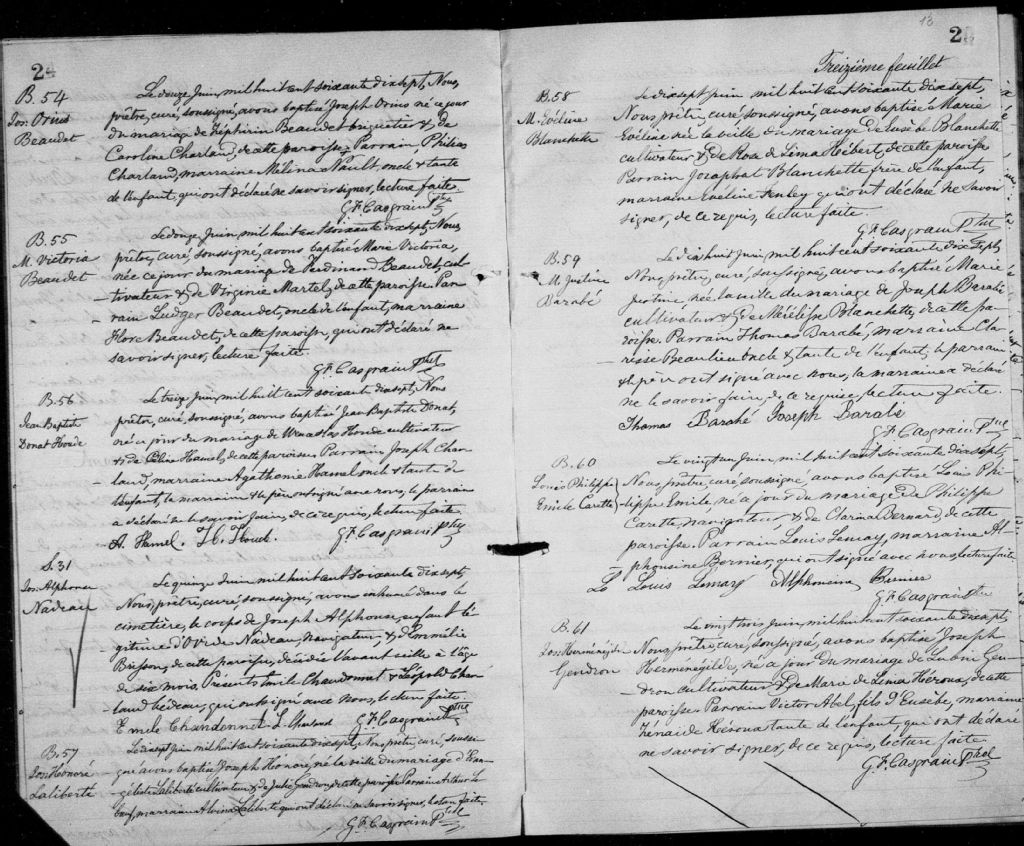 24
B. 54
Jos. Orius
Beaudet
Le douze Juin, mil huit cent soixante dix sept, Nous,
prêtre, curé, soussigné, avons baptisé Joseph Orius né ce jour
du mariage de Zéphirin Beaudet briquetier & de
Caroline Charland, de cette paroisse. Parrain, Philias
Charland, marraine Mélina Nault, oncle & tante
de l'enfant, qui ont déclaré ne savoir signer, lecture faite.
G. F. Casgrain Ptre
B. 55
M. Victoria
Beaudet
Le douze, Juin, mil huit cent soixante dix sept, Nous,
prêtre, curé, soussigné, avons baptisé Marie Victoria,
née ce jour du mariage de Ferdinand Beaudet, cul-
tivateur & de Virginie Martel, de cette paroisse. Par-
rain Ludger Beaudet, oncle de l'enfant, marraine
Flore Beaudet, de cette paroisse, qui ont déclaré ne
savoir signer, lecture faite.
G. F. Casgrain Ptre
B. 56
Jean Baptiste
Donat Houde
Le treize Juin, mil huit cent soixante dix sept, Nous
prêtre, curé, soussigné, avons baptisé Jean Baptiste Donat,
né ce jour du mariage de Wenceslas Houde cultivateur
& de Céline Hamel, de cette paroisse. Parrain Joseph Char-
land, marraine Agathonie Hamel oncle & tante de
l'enfant, la marraine & le père ont signé avec nous, le parrain
a déclaré ne le savoir faire, de ce requis, lecture faite.
A. Hamel. H. Houde. G. F. Casgrain Ptre
S. 31
Jos. Alphonse
Nadeau
Le quinze Juin, mil huit cent soixante dix sept,
Nous, prêtre, curé, soussigné, avons inhumé dans le
cimetière, le corps de Joseph Alphonse, enfant lé-
gitime d'Ovide Nadeau, navigateur & d'Emmélie
Brisson, de cette paroisse, décédé l'avant veille à l'âge
de six mois. Présents Emile Chandonnet & Léopold Char-
land, qui ont signé avec nous, lecture faite.
Emile Chandonnet L. Charland G. F. Casgrain Ptre
B. 57
Jos. Honoré
Laliberté
Le dix sept Juin mil huit cent soixante dix sept, Nous, prêtre, curé, soussi-
gné avons baptisé Joseph Honoré, né la veille du mariage
Laliberté cultivateur & de Julie Gendron, de cette paroisse. Parrain Arthur Le
beuf, marraine Alvina Laliberté qui ont déclaré ne savoir signer, lecture faite.
G. F. Casgrain Ptre
13
2
Treizième feuillet
B. 58
M. Evéline
Blanchette
Le dix sept juin, mil huit cent soixante dix sept,
Nous, prêtre, curé, soussigné, avons baptisé Marie
Evéline née la veille du mariage d'Eusèbe Blanchette
cultivateur & de Rose de Lima Hébert, de cette paroisse
Parrain Josaphat Blanchette frère de l'enfant,
marraine Evéline qui ont déclaré ne savoir
signer, de ce requis, lecture faite.
G. F. Casgrain Ptre
B. 59
M. Justine
Barabé
Le dix huit Juin, mil huit cent soixante dix sept,
Nous, prêtre, curé, soussigné, avons baptisé Marie
Justine, née la veille du mariage de Joseph Barabé
cultivateur & de Mélélipe Blanchette, de cette pa-
roisse. Parrain Thomas Barabé, marraine Cla-
risse Beaulieu oncle & tante de l'enfant, le parrain
& le père ont signé avec nous, la marraine a déclaré
ne le savoir faire, de ce requise, lecture faite.
Thomas Barabé Joseph Barabé
G. F. Casgrain Ptre
B. 60
Louis Philippe
Emile Carette
Le vingt un Juin, mil huit cent soixante dix sept,
Nous, prêtre, curé, soussigné, avons baptisé Louis Phi-
lippe Emile, né ce jour du mariage de Philippe
Carette, navigateur, & de Clarina Bernard, de cette
paroisse. Parrain Louis Lemay, marraine Al-
phonsine Bernier, qui ont signé avec nous, lecture faite.
Ls Louis Lemay Alphonsine Bernier
G. F. Casgrain Ptre
B. 61
Jos. Herménégilde
Gendron
Le vingt trois Juin, mil huit cent soixante dix sept,
Nous, prêtre, curé, soussigné, avons baptisé Joseph
Herménégilde, né ce jour du mariage de Ludvi Gen-
dron cultivateur & de Marie de Lima Héroux, de cette
paroisse. Parrain Victor Abel, fils d'Eusèbe, marraine
Zénaide Héroux tante de l'enfant, qui ont déclaré
ne savoir signer, de ce requis, lecture faite.
G. F. Casgrain Ptre